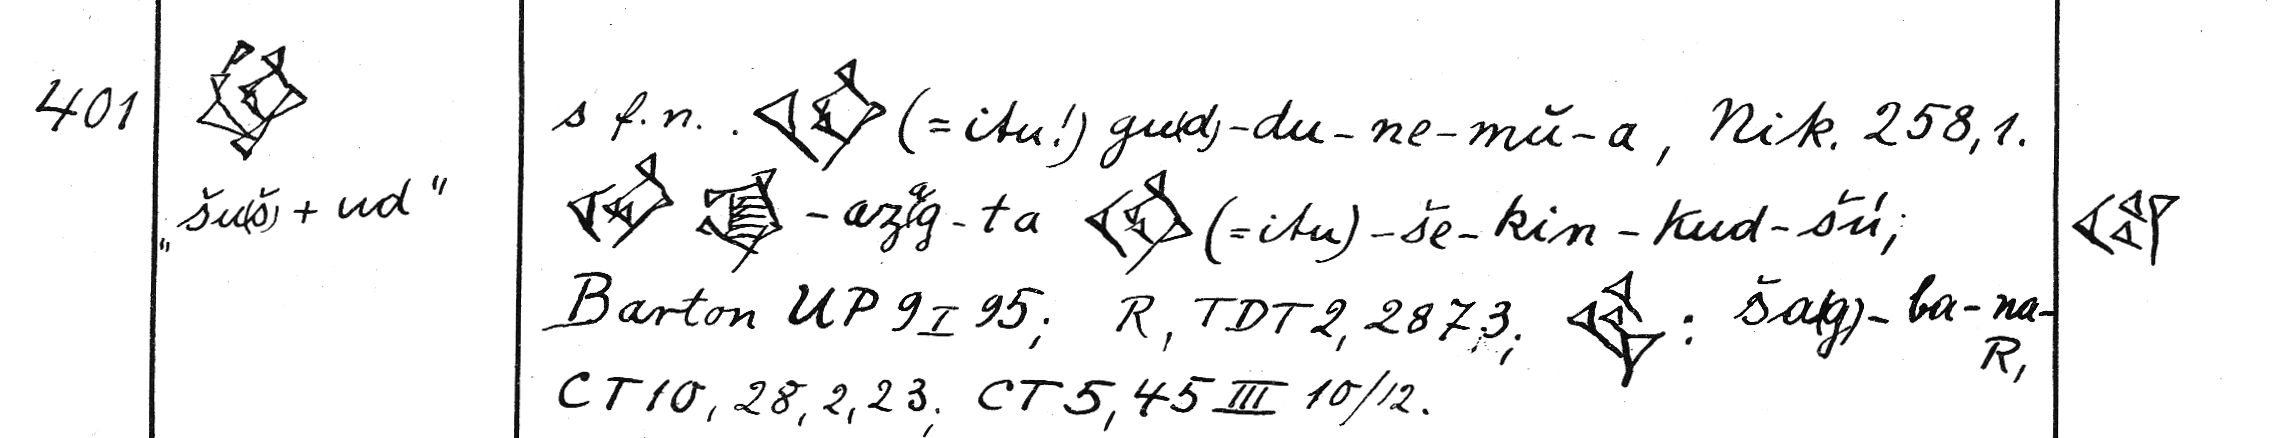 401 s f.n. . (=itu!) gu(d)-du-ne-mŭ-a, Nik. 258,1.
„šu(š)+ud" -azăg-ta (=itu)-še-kin-kud-šú;
Barton UP 9 I 95; R, TDT 2, 2873; : ša(g)-ba-na-
R,
CT 10, 28, 2, 23; CT 5, 45 III 10/12.